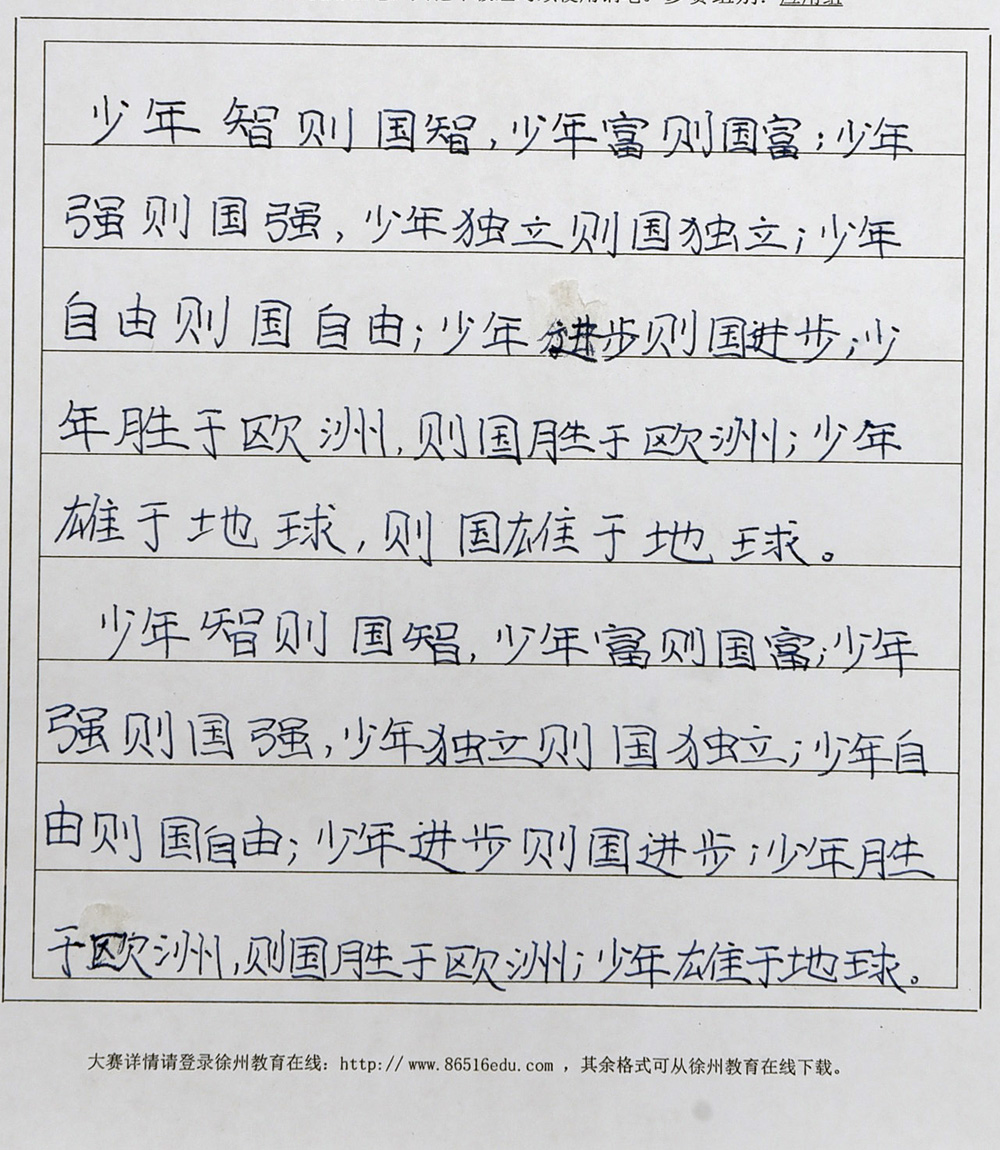 参赛组别：应用组
少年智则国智，少年富则国富；少年
强则国强，少年独立则国独立；少年
自由则国自由；少年进步则国进步；少
年胜于欧洲，则国胜于欧洲；少年
雄于地球，则国雄于地球。
少年智则国智，少年富则国富；少年
强则国强，少年独立则国独立；少年自
由则国自由；少年进步则国进步；少年胜
于欧洲，则国胜于欧洲；少年雄于地球。
大赛详情请登录徐州教育在线：http://www.86516edu.com ，其余格式可从徐州教育在线下载。